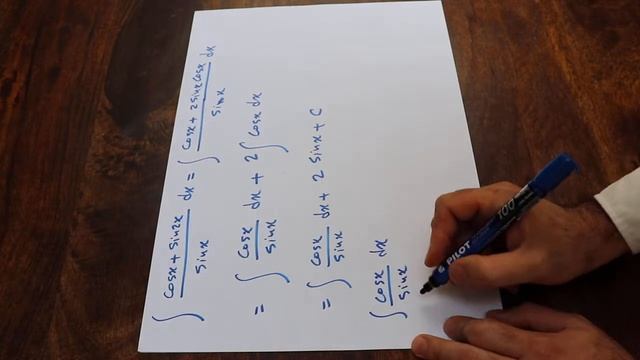 ∫ (cosx + sin2x)/sinx dx = ∫ (cosx + 2sinxcosx)/sinx dx
= ∫ cosx/sinx dx + 2∫ cosx dx
= ∫ cosx/sinx dx + 2 sinx + C
∫ cosx/sinx dx
PILOT 100